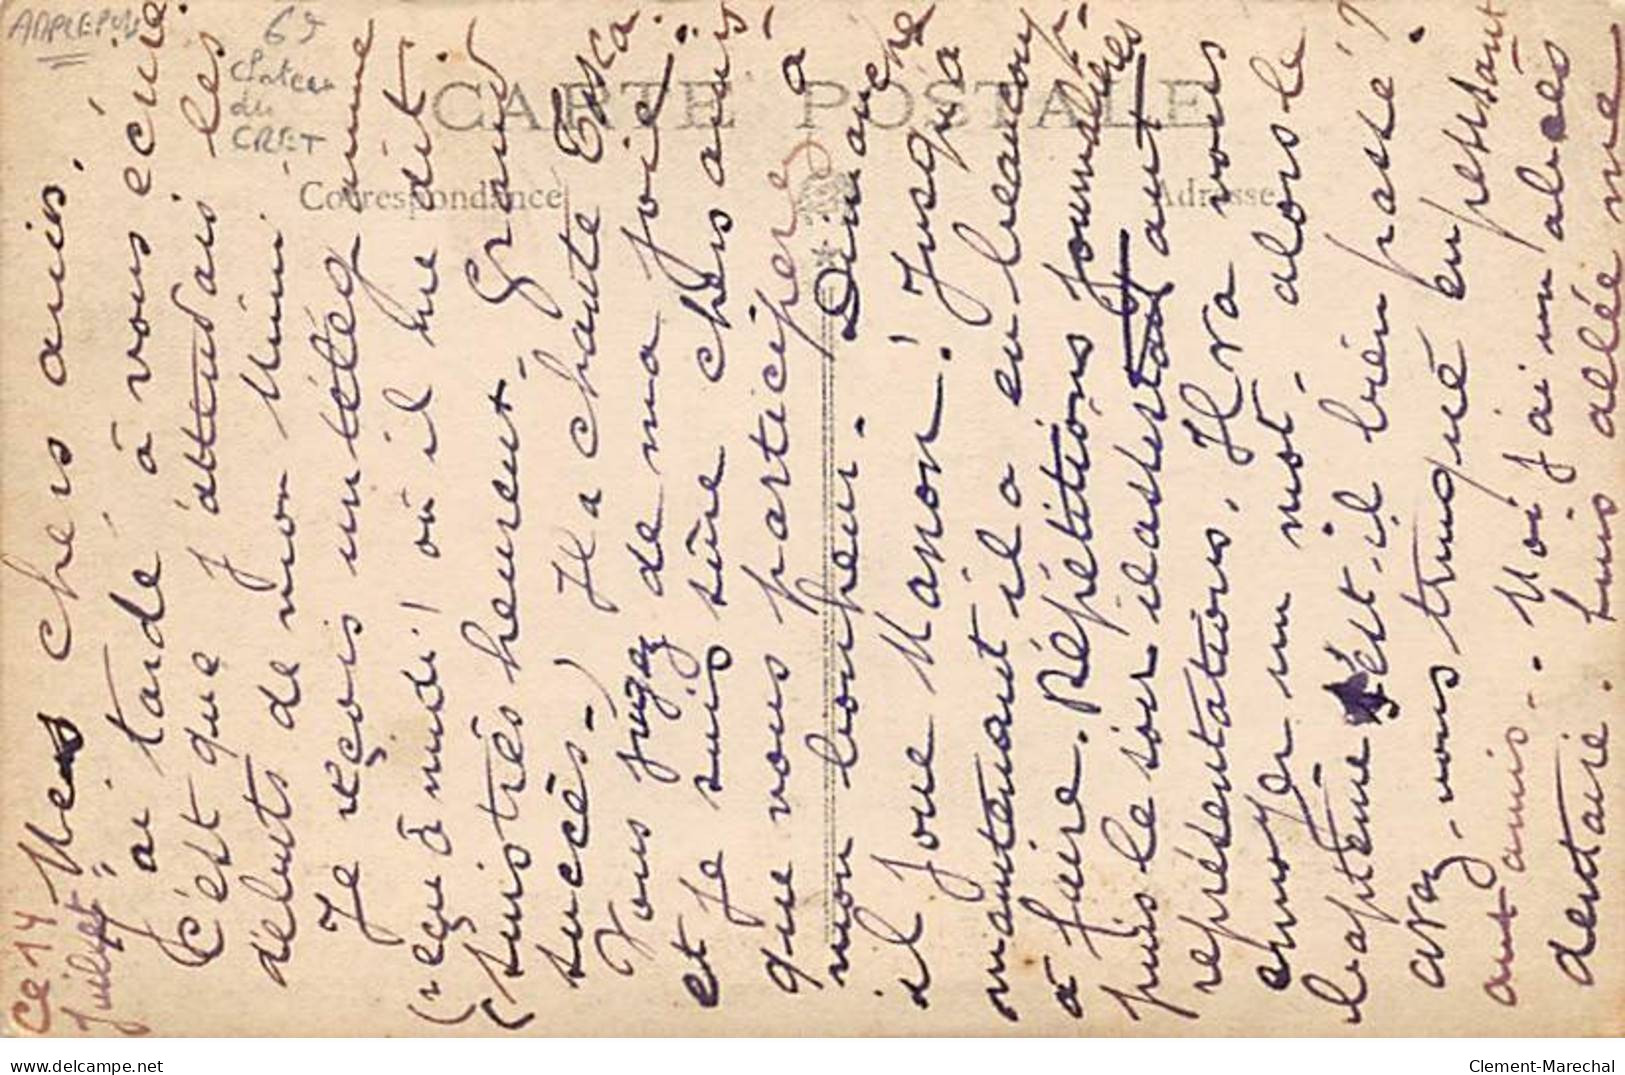 69
Plateau
du
CRET
CARTE POSTALE
Correspondance
Adresse
Ce 14
Juillet
Mes chers amis.
J'ai tardé à vous écrire
C'est que j'attendais les
débuts de mon Mimi.
Je reçois un télégramme
(reçu à midi) où il me dit
(suis très heureux. Grand
succès.) Il a chanté Tosca.
Vous jugez de ma joie!
et je suis sûre chers amis
que vous participez à
mon bonheur. Dimanche
il joue Manon! Jusqu'à
maintenant il a eu beaucoup
à faire. Répétitions journalières
puis le soir il assistait aux
représentations. Il va vous
envoyer un mot. alors le
baptême s'est-il bien passé?
avez-vous trinqué en pensant
aux amis.. Moi j'ai un abcès
dentaire. suis allée me
delcampe.net
Clement-Marechal